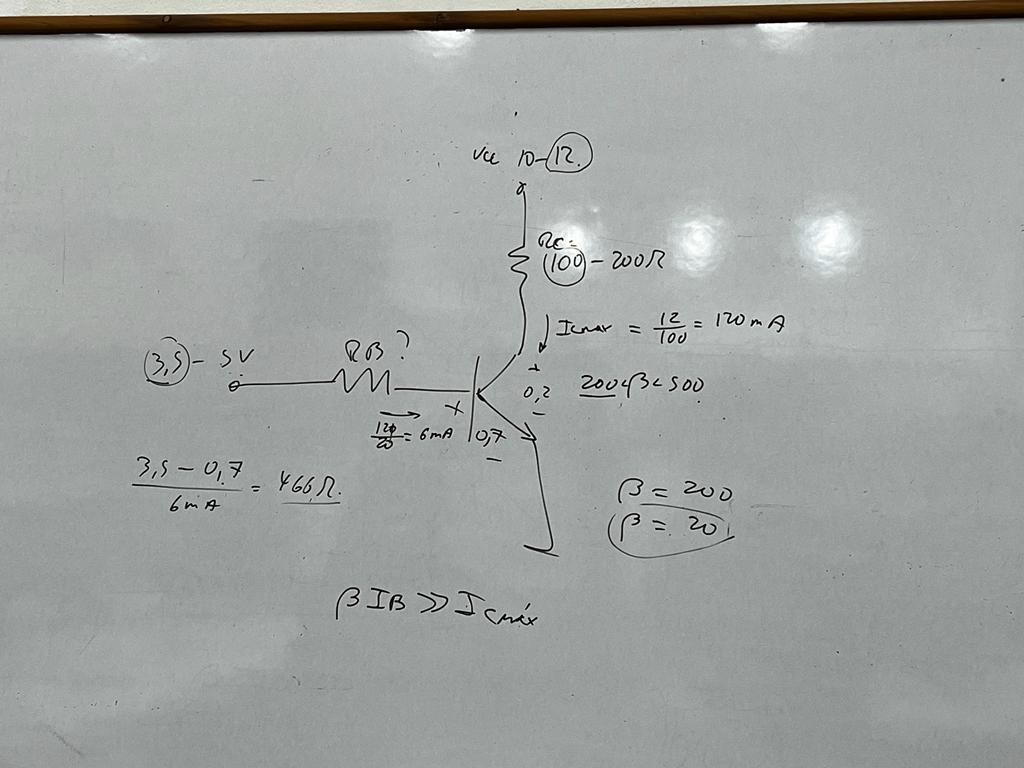 Vcc 10-12
Rc=
100 - 200Ω
Icmax = 12/100 = 120 mA
3,5 - 5V
RB?
+
0,2
-
200<β<500
+
0,7
-
120/20 = 6mA
3,5 - 0,7 / 6mA = 466Ω.
β = 200
β = 20
βIB >> Icmáx